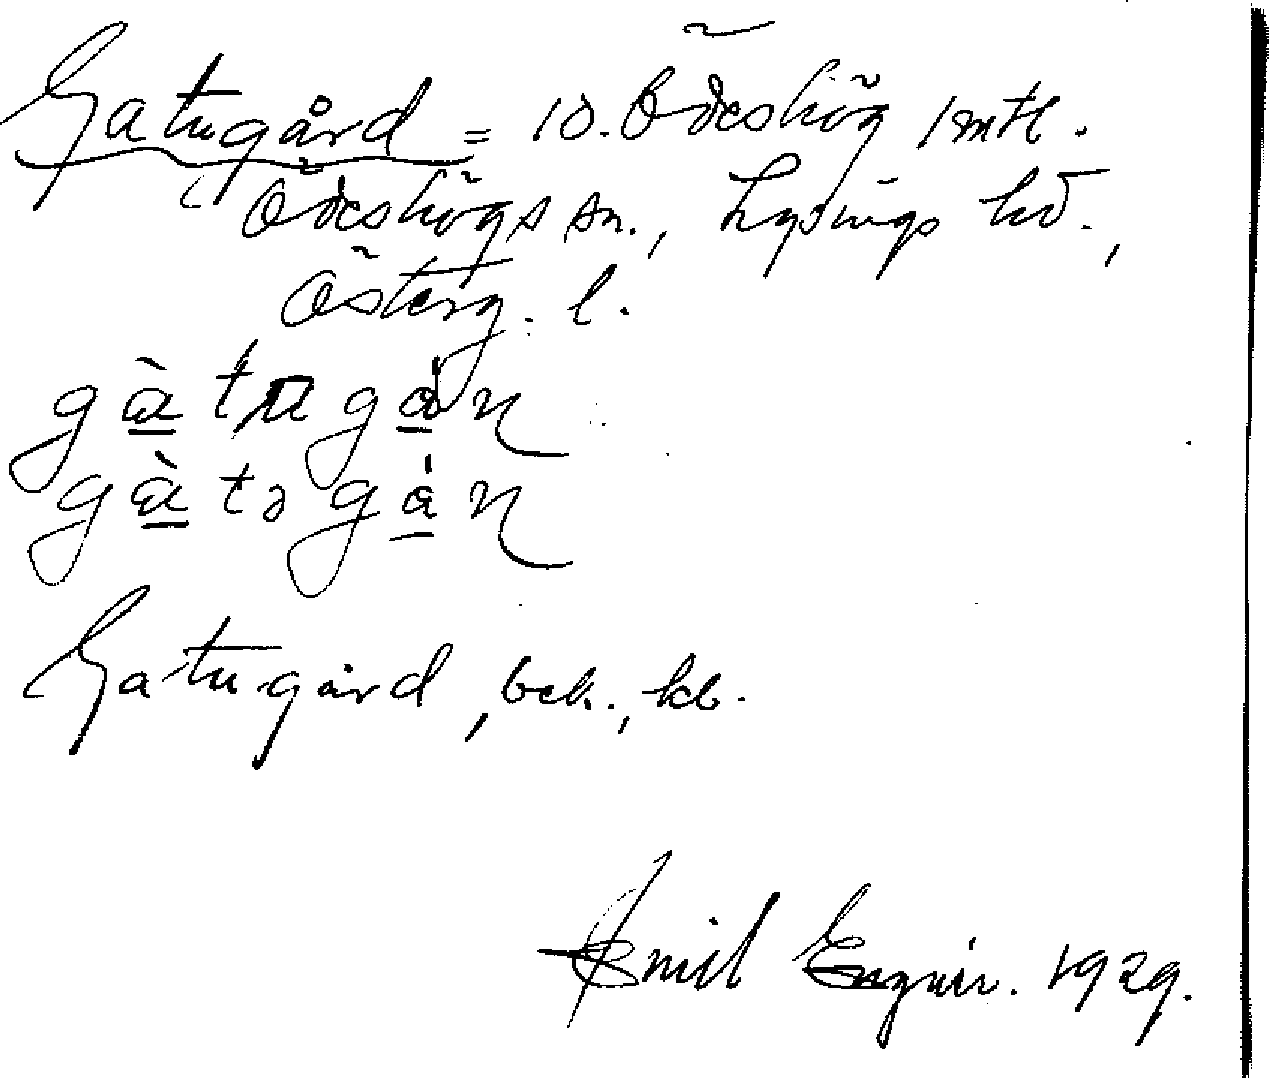 Gatugård = 10. Ödeshög 1 mtl.
Ödeshögs sn., Lysings hd.,
Österg. l.
gàtugán
gàtəgán
Gatugård, bek., kb.
Emil 1929.